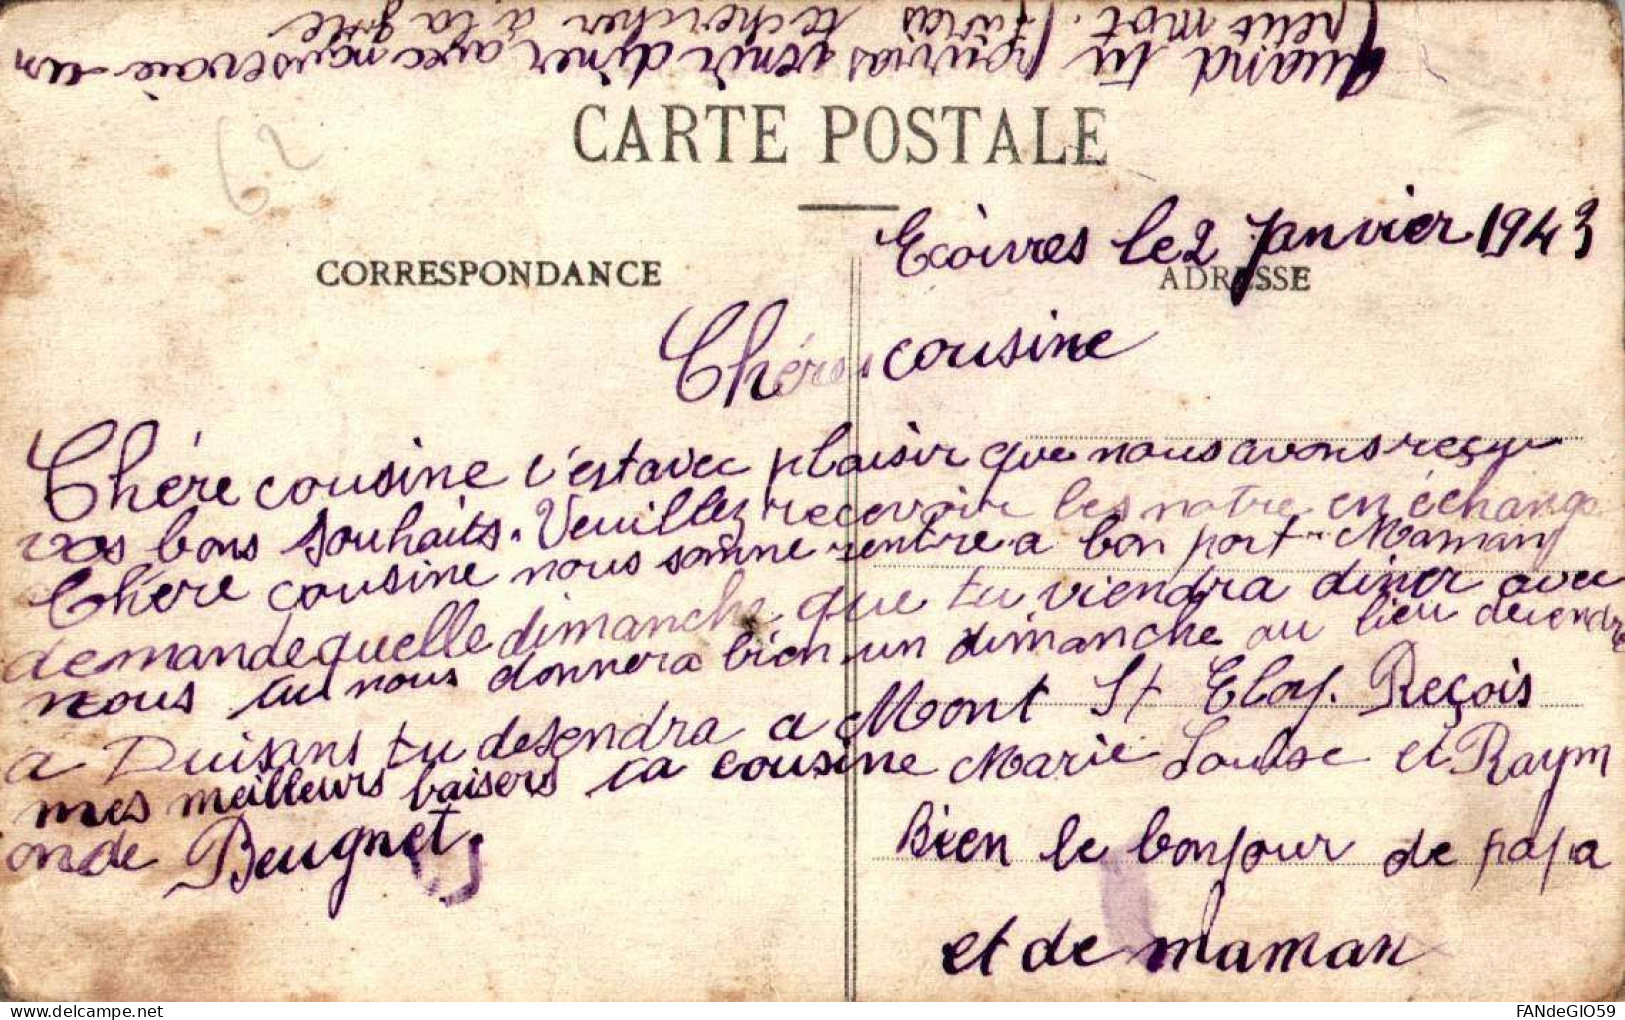 Quand tu pourras venir diner avec nous envoie un
petit mot. J'irai te chercher à la gare
CARTE POSTALE
62
Ecòivres le 2 Janvier 1943
CORRESPONDANCE
ADRESSE
Chére cousine
Chére cousine c'est avec plaisir que nous avons reçu
vos bons souhaits. Veuillez recevoir les notre en échange
Chére cousine nous somme rentre a bon port Maman
demande quelle dimanche que tu viendra diner avec
nous tu nous donnera bien un dimanche au lieu desendre
a Duisans tu desendra a Mont St Eloy. Reçois
mes meilleurs baisers ta cousine Marie Louise et Raym
onde Beugnet.
Bien le bonjour de papa
et de maman
FANdeGIO59